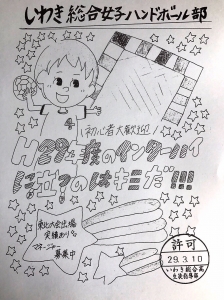 いわき総合女子ハンドボール部
初心者大歓迎
H29年度のインターハイ
に立つのはキミだ!!!
東北大会出場
実績あり!
マネージャー
募集中
許可
29.3.10
いわき総合高
生徒指導部